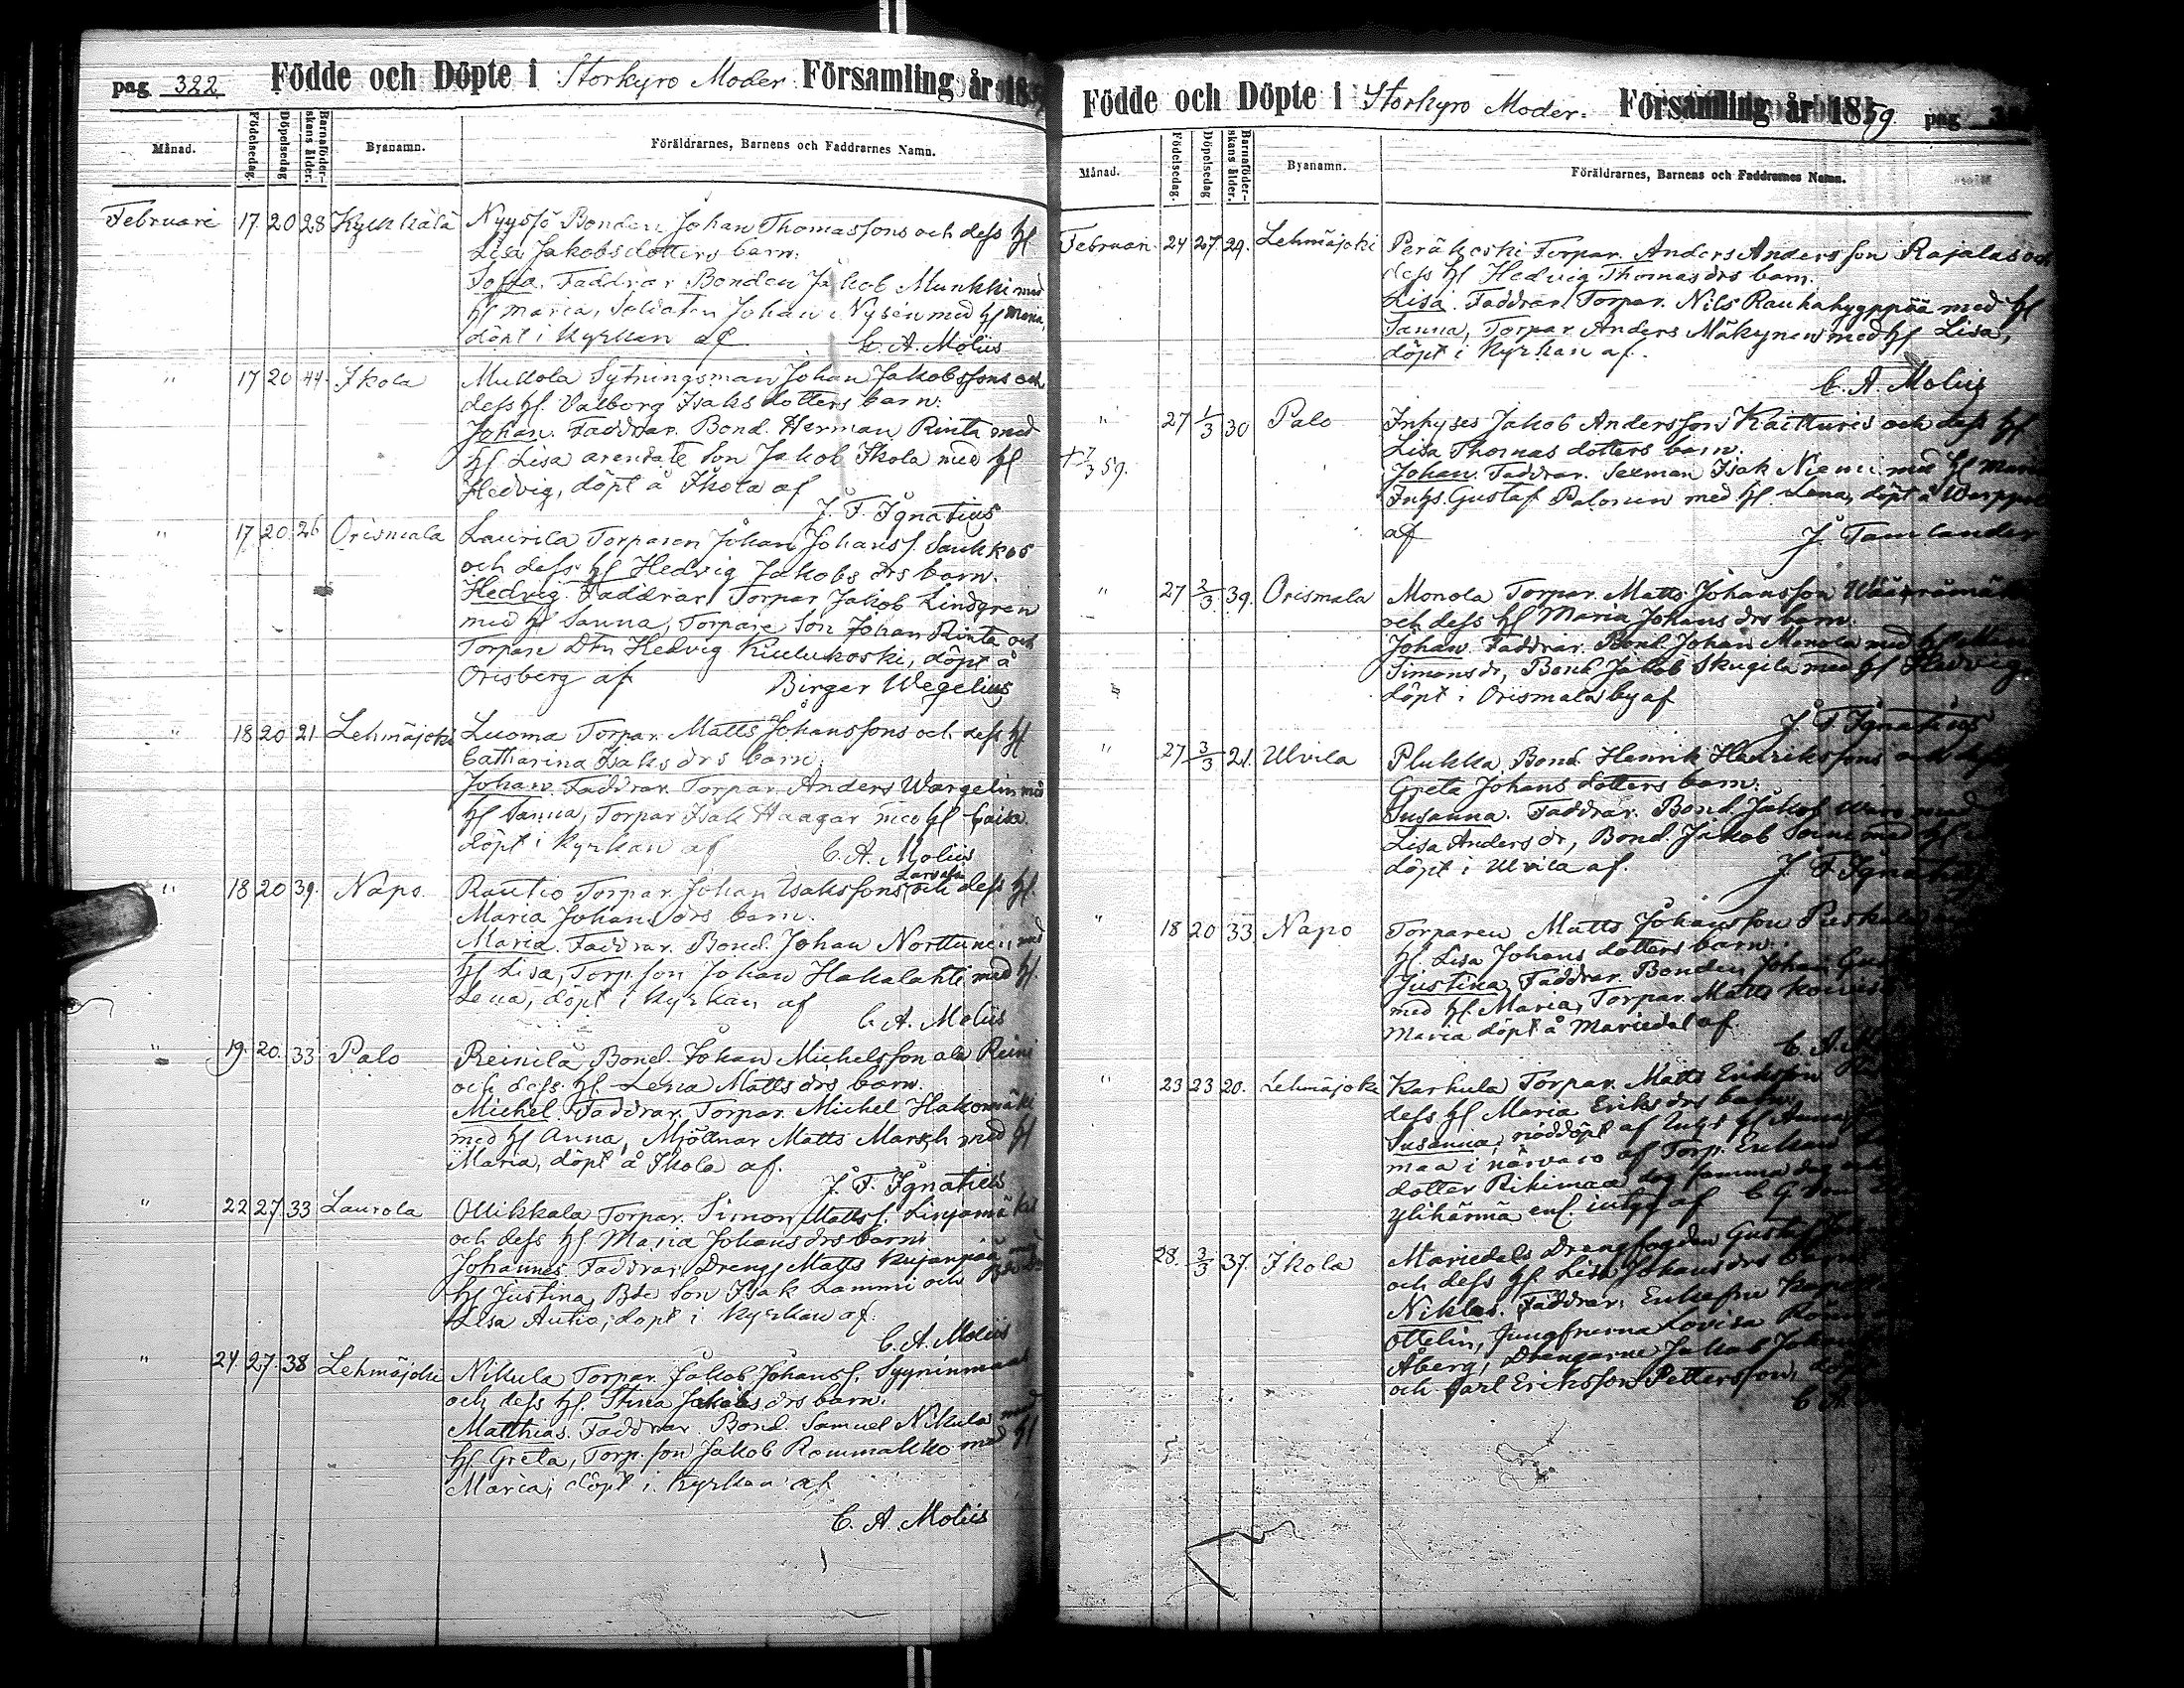 pag. 322. Födde och Döpte i Storkyro Moder Församling år 185
Månad. Födelsedag. Döpelsedag. Barnaföderskans ålder. Byanamn. Föräldrarnes, Barnens och Faddrarnes Namn.
Februari 17 20 28 Kylkkälä Nyyssö Bonden Johan Thomassons och dess hf
Lisa Jakobsdotters barn:
Sofia. Faddrar Bonden Jakob Munkki med
hf Maria, Soldaten Johan Nysén med hf Maria,
döpt i Kyrkan af C. A. Moliis
" 17 20 44 Ikola Mullola Sytningsman Johan Jakobssons och
dess hf. Valborg Isaksdotters barn:
Johan. Faddrar. Bond. Herman Rinta med
hf Lisa arendate Son Jakob Ikola med hf
Hedvig, döpt å Ikola af
J. F. Ignatius
" 17 20 26 Orismala Laurila Torparen Johan Johanss. Saukkos
och dess hf Hedvig Jakobs drs barn.
Hedvig. Faddrar Torpar Jakob Lindgren
med hf Sanna, Torpare Son Johan Rinta och
Torpare Dtn Hedvig Kuulukoski, döpt å
Orisberg af Birger Wegelius
" 18 20 21 Lehmäjoki Luoma Torpar. Matts Johanssons och dess hf
Catharina Isaks drs barn.
Johan. Faddrar. Torpar. Anders Wargelin med
hf Sanna, Torpar Isak Haagar med hf Caisa.
döpt i Kyrkan af C. A. Moliis
" 18 20 39. Napo. Rautio Torpar. Johan Isakssons och dess hf.
Maria Johans drs barn.
Maria. Faddrar. Bond. Johan Norttunen med
hf Lisa, Torp. son Johan Hakalahti med hf.
Lena, döpt i Kyrkan af
C. A. Moliis
" 19. 20. 33 Palo Reinilä Bond. Johan Michelsson ala Reini
och dess hf Lena Matts drs barn.
Michel. Faddrar. Torpar. Michel Hakomäki
med hf Anna, Mjöllnar Matts Marsch med hf
Maria, döpt å Ikola af.
J. F. Ignatius
" 22 27. 33 Laurola Ollikkala Torpar. Simon Matts s. Linjamäki
och dess hf Maria Johans drs barn:
Johannes. Faddrar. Drengs Matts Kujanpää med
hf Justina, Bde Son Isak Lammi och
Lisa Autio, döpt i Kyrkan af.
C. A. Moliis
" 24. 27. 38 Lehmäjoki Nikula Torpar. Jakob Johanss. Syyrinmaas
och dess hf. Stina Jakobs drs barn.
Matthias. Faddrar. Bond. Samuel Nikula med
hf Greta, Torp. son Jakob Rommakko med hf
Maria, döpt i Kyrkan af
C. A. Moliis
Födde och Döpte i Storkyro Moder. Församling år 1859 pag.
Månad. Födelsedag. Döpelsedag Barnaföderskans ålder. Byanamn. Föräldrarnes, Barnens och Faddrarnes Namn.
Februari. 24 27. 29. Lehmäjoki Peräkoski Torpar. Anders Andersson Rajalas och
dess hf Hedvig Thomas drs barn.
Lisa. Faddrar. Torpar. Nils Rauhahygppää med hf
Sanna, Torpar Anders Mäkynen med hf Lisa,
döpt i Kyrkan af.
C. A. Moliis
" 27 1/3 30 Palo Inhyses Jakob Andersson Kaitturis och dess hf
Lisa Thomas dotters barn.
+ 7/3 59.
Johan. Faddrar. Sexman Isak Niemi med hf Maria
Inhs. Gustaf Palonen med hf Lena, döpt å
af J. Tamlander
" 27 2/3 39. Orismala Monola Torpar. Matts Johansson
och dess hf Maria Johans drs barn.
Johan. Faddrar. Bond. Johan Monola med hf
Simons dr, Bond Jakob Skugila med hf Hedvig
döpt i Orismala by af
J. F. Ignatius
" 27 3/3 21. Ulvila Plukka Bond. Henrik Henrikssons och dess
Greta Johans dotters barn:
Susanna. Faddrar. Bond. Jakob med
Lisa Anders dr, Bond. Jakob med hf
döpt i Ulvila af. J. F. Ignatius
" 18 20 33 Napo Torparen Matts Johansson
hf. Lisa Johans dotters barn:
Justina. Faddrar. Bonden Johan
med hf. Maria, Torpar. Matts
Maria döpt å Mariedal af.
C. A.
" 23 23 20. Lehmäjoki Karhula Torpar. Matts Eriksson
dess hf Maria Eriks drs barn.
Susanna, nöddöpt af Inhs hf Anna
maa i närvaro af Torp. Enkan
dotter Rikimaa dog samma dag och
Ylihärmä enl. intyg af C G
28. 3/3 37. Ikola Mariedals Drengfogden Gustaf
och dess hf. Lisa Johans drs barn
Niklas. Faddrar: Enkefru
Ottelin, Jungfruerna Lovisa
Åberg, Drengarne Jakob
och Carl Eriksson Pettersson, döpt
C A